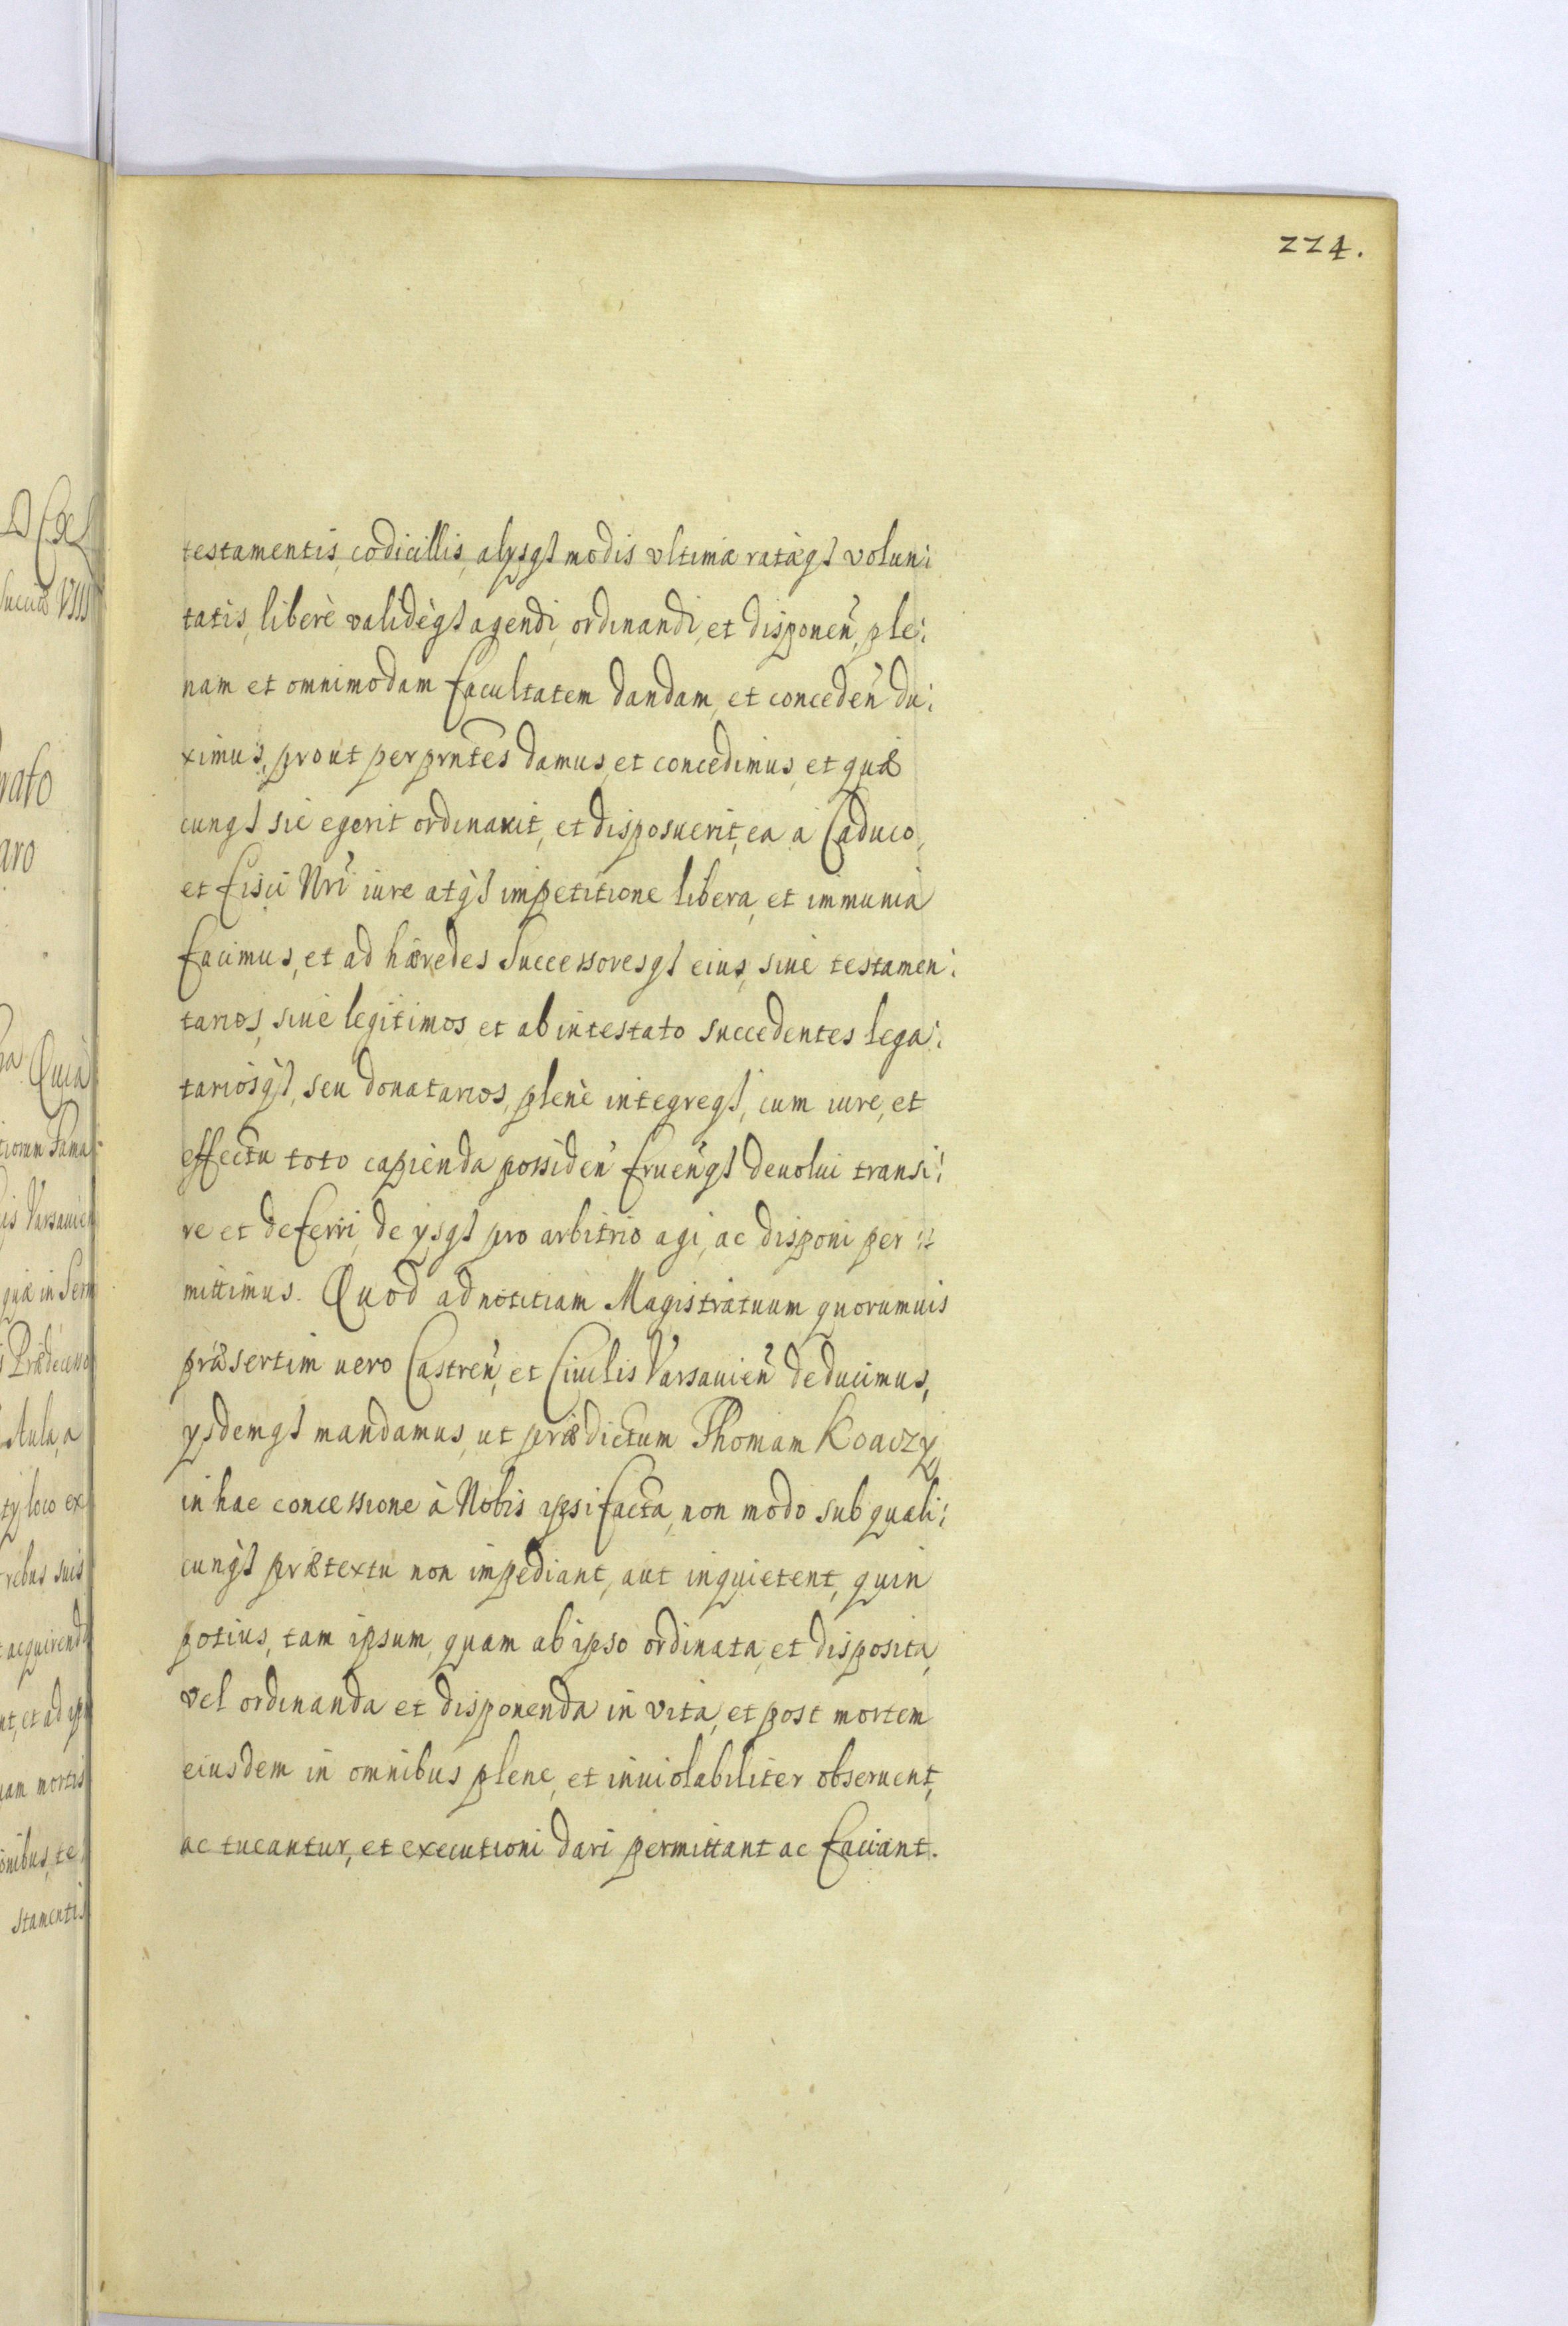 224.
testamentis, codicillis, alysq3 modis vltimæ ratæq3 volun:
tatis, liberè validèq3 agendi, ordinandi, et disponen̄, ple:
nam et omnimodam facultatem dandam, et conceden̄ du:
ximus, prout per prn̄tes damus, et concedimus, et quæ
cunq3 sic egerit ordinarit, et disposuerit, ea a Caduco,
et Fisci Nr̄i iure atq3 impetitione libera, et immunia
facimus, et ad hæredes Successoresq3 eius, siue testamen:
tarios, siue legitimos et ab intestato succedentes lega:
tariosq3, seu donatarios, plenè integreq3, cum iure, et
effectu toto capienda possiden̄ fruen̄q3 deuolui transi:
re et deferri, de ysq3 pro arbitrio agi, ac disponi per:
mittimus. Quod ad notitiam Magistratuum quorumuis
præsertim uero Castren̄, et Ciuilis Varsauien̄ deducimus,
ysdemq3 mandamus, ut prædictum Thomam Koaczy
in hac concessione à Nobis ipsi facta, non modo sub quali:
cunq3 prætextu non impediant, aut inquietent, quin
potius, tam ipsum, quam ab ipso ordinata, et disposita,
vel ordinanda et disponenda in vita, et post mortem
eiusdem in omnibus plene, et inuiolabiliter obseruent,
ac tueantur, et executioni dari permittant ac faciant.